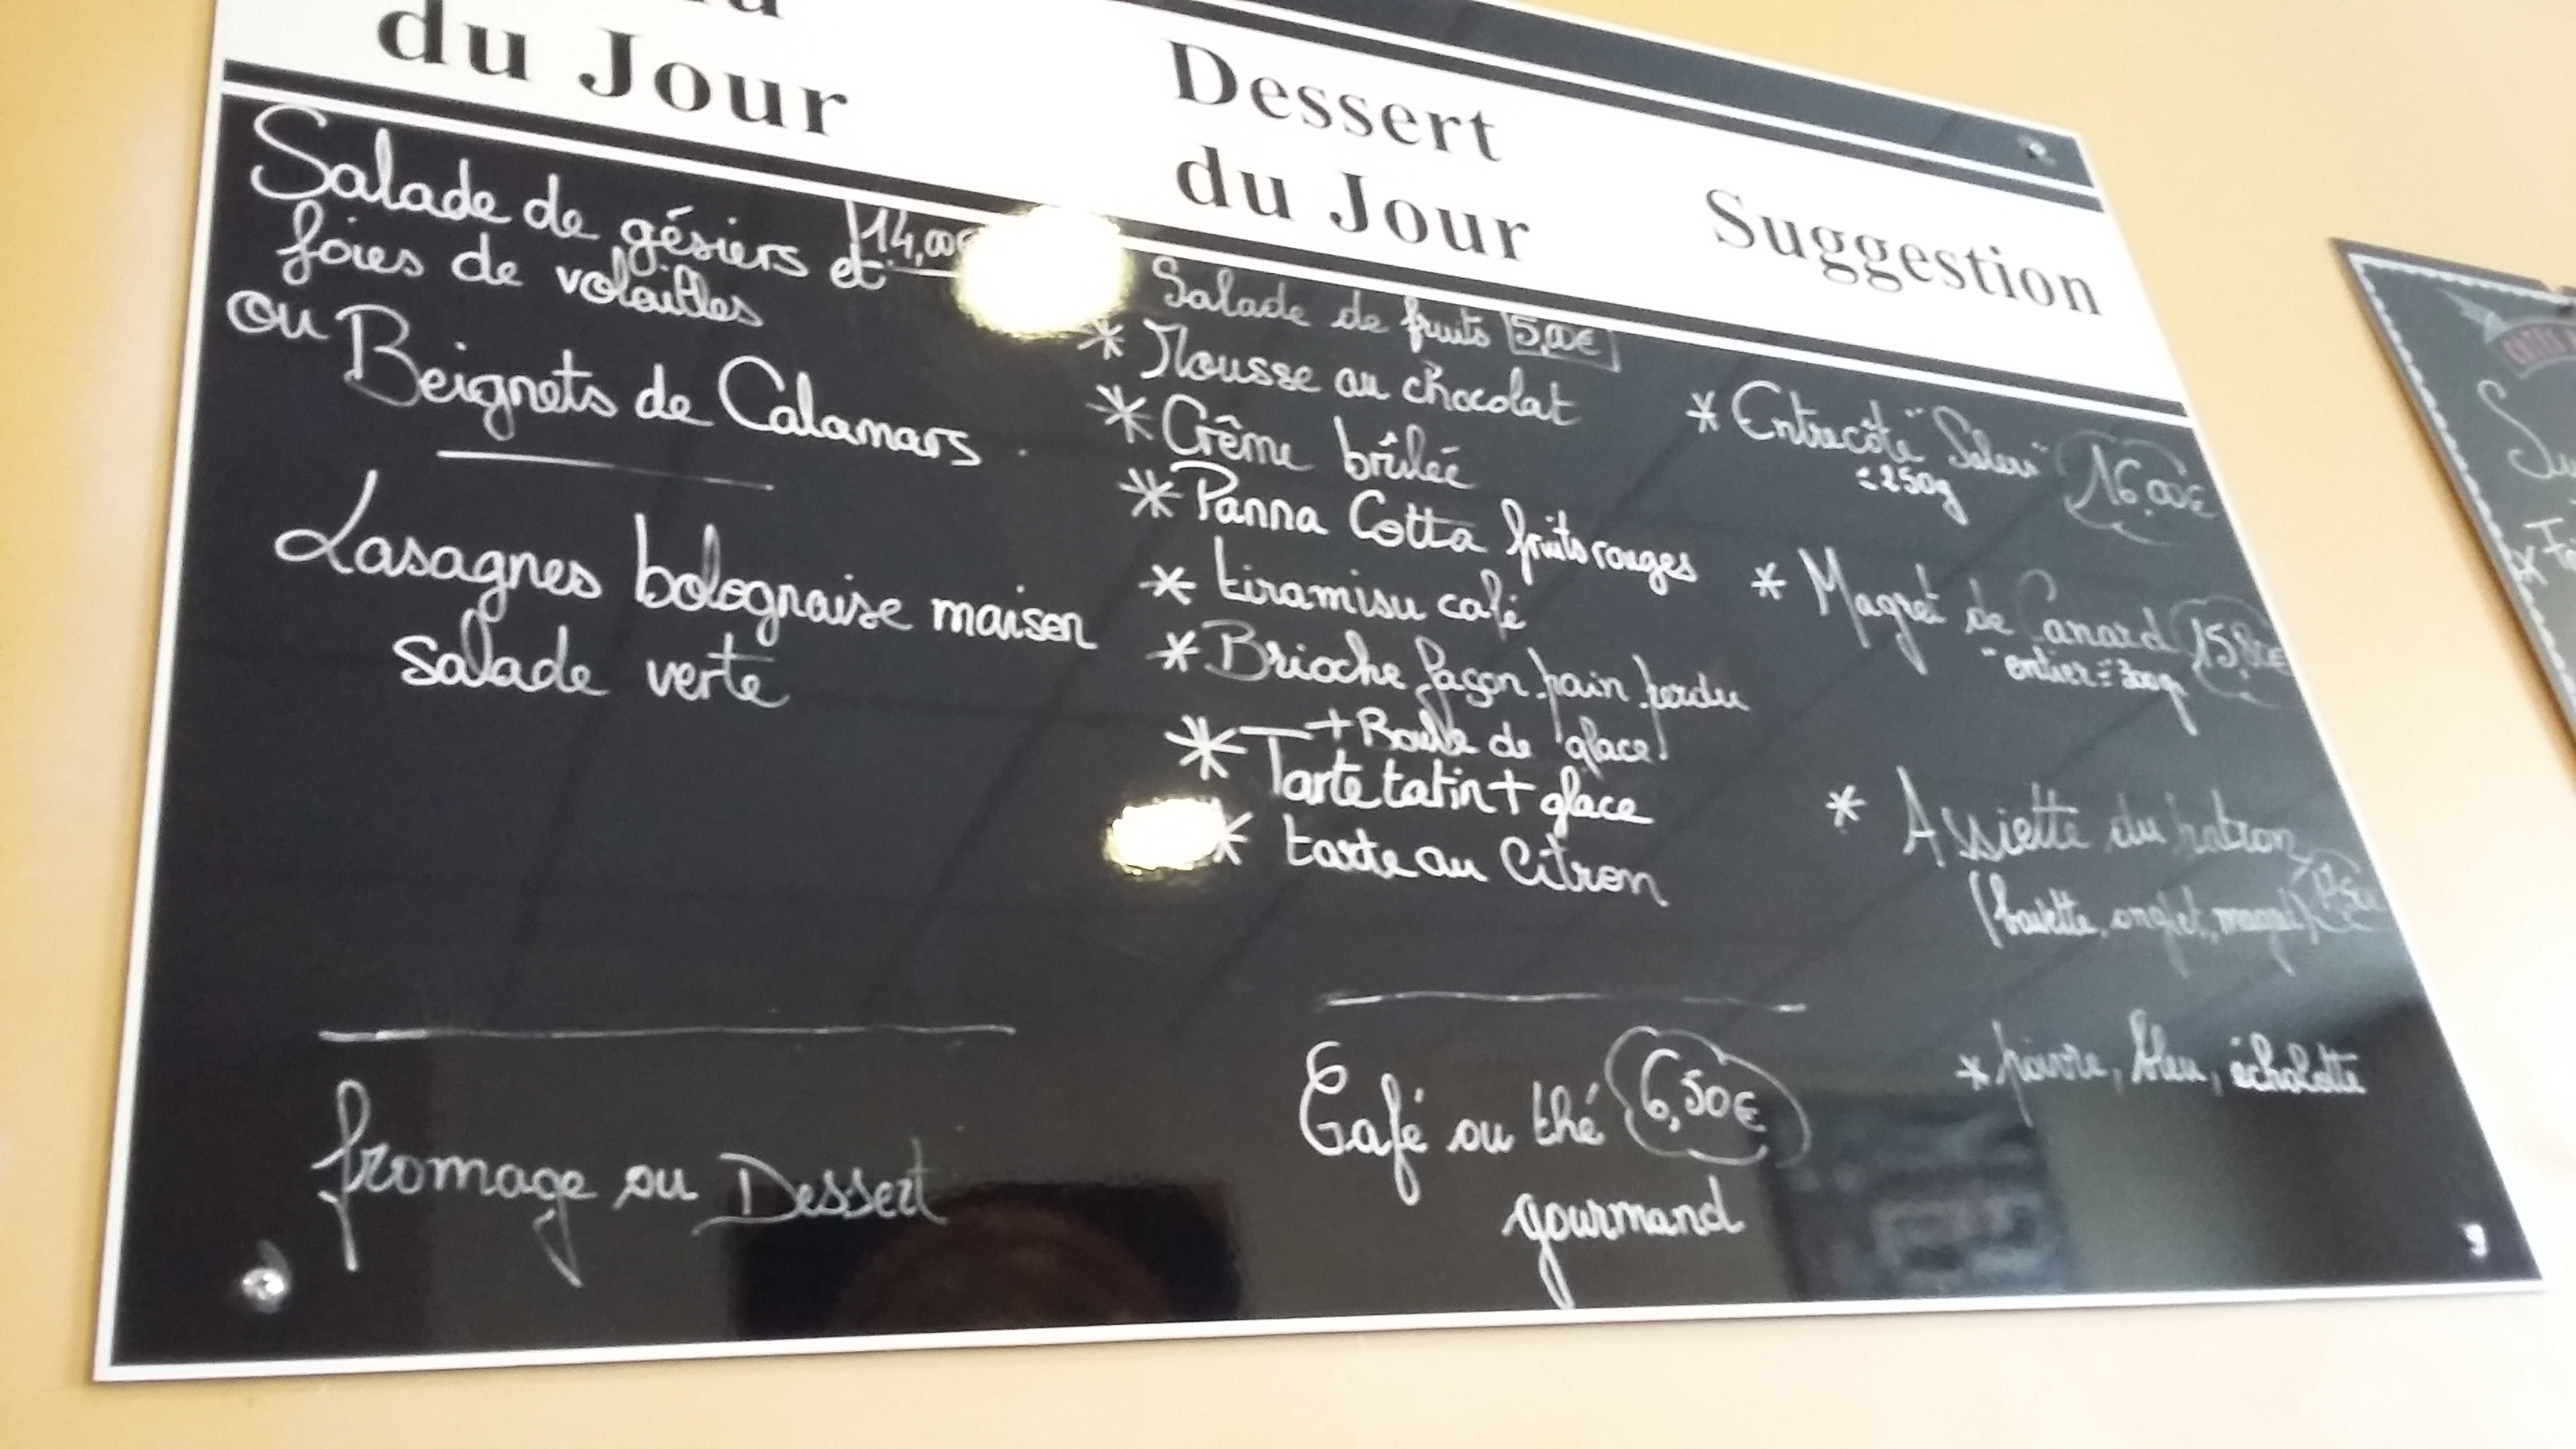 du Jour
Salade de gésiers et 14,00€
foies de volailles
ou Beignets de Calamars
Lasagnes bolognaise maison
salade verte
fromage ou Dessert
Dessert
du Jour
Salade de fruits 5,00€
* Mousse au chocolat
* Crême brûlée
* Panna Cotta fruits rouges
* tiramisu café
* Brioche façon pain perdu
+ Boule de glace
* Tarte tatin + glace
* tarte au Citron
Café ou thé 6,50€
gourmand
Suggestion
* Entrecôte "Salers" 16,00€
250g
* Magret de Canard 15,80€
"entier" = 300g
* Assiette du patron
(bavette, onglet, magret)
* poivre, bleu, échalotte